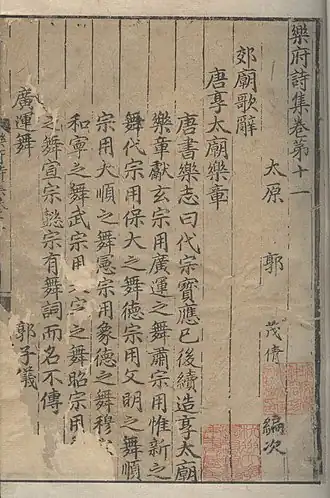 樂府詩集卷第十一
太原 郭 茂倩 編次
郊廟歌辭
唐享太廟樂章
唐書樂志曰代宗寶應已後續造享太廟
樂章獻玄宗用廣運之舞肅宗用惟新之
舞代宗用保大之舞德宗用文明之舞順
宗用大順之舞憲宗用象德之舞穆
和寧之舞武宗用大定之舞昭宗用
之舞宣宗懿宗有舞詞而名不傳
廣運舞 郭子儀